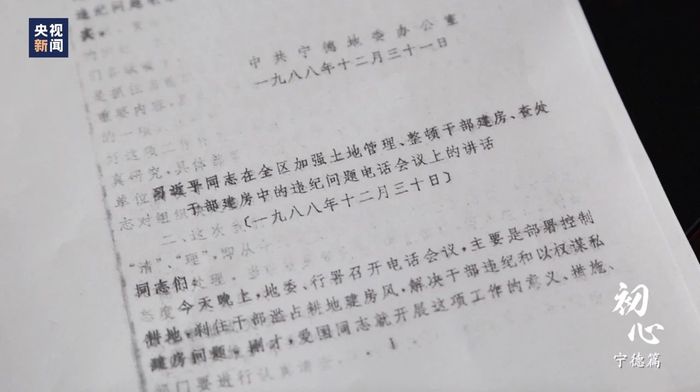 央视
新闻
违纪问题
实。
中共宁德地委办公室
一九八八年十二月三十一日
是抓住
重要内容
的一项
真研究，具体
单位
习近平同志在全区加强土地管理、整顿干部建房、查处
干部建房中的违纪问题电话会议上的讲话
志对
（一九八八年十二月三十日）
二、这次
“清”、“理”，即从
同志们：
处理，
今天晚上，地委、行署召开电话会议，主要是部署控制
耕地，刹住干部滥占耕地建房风，解决干部违纪和以权谋私
建房问题。刚才，爱国同志就开展这项工作的意义、措施、
部门要进行认真
初
心
宁德篇